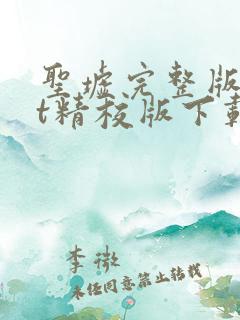 聖墟完整版
t精校版下載
李微
未经同意禁止转载